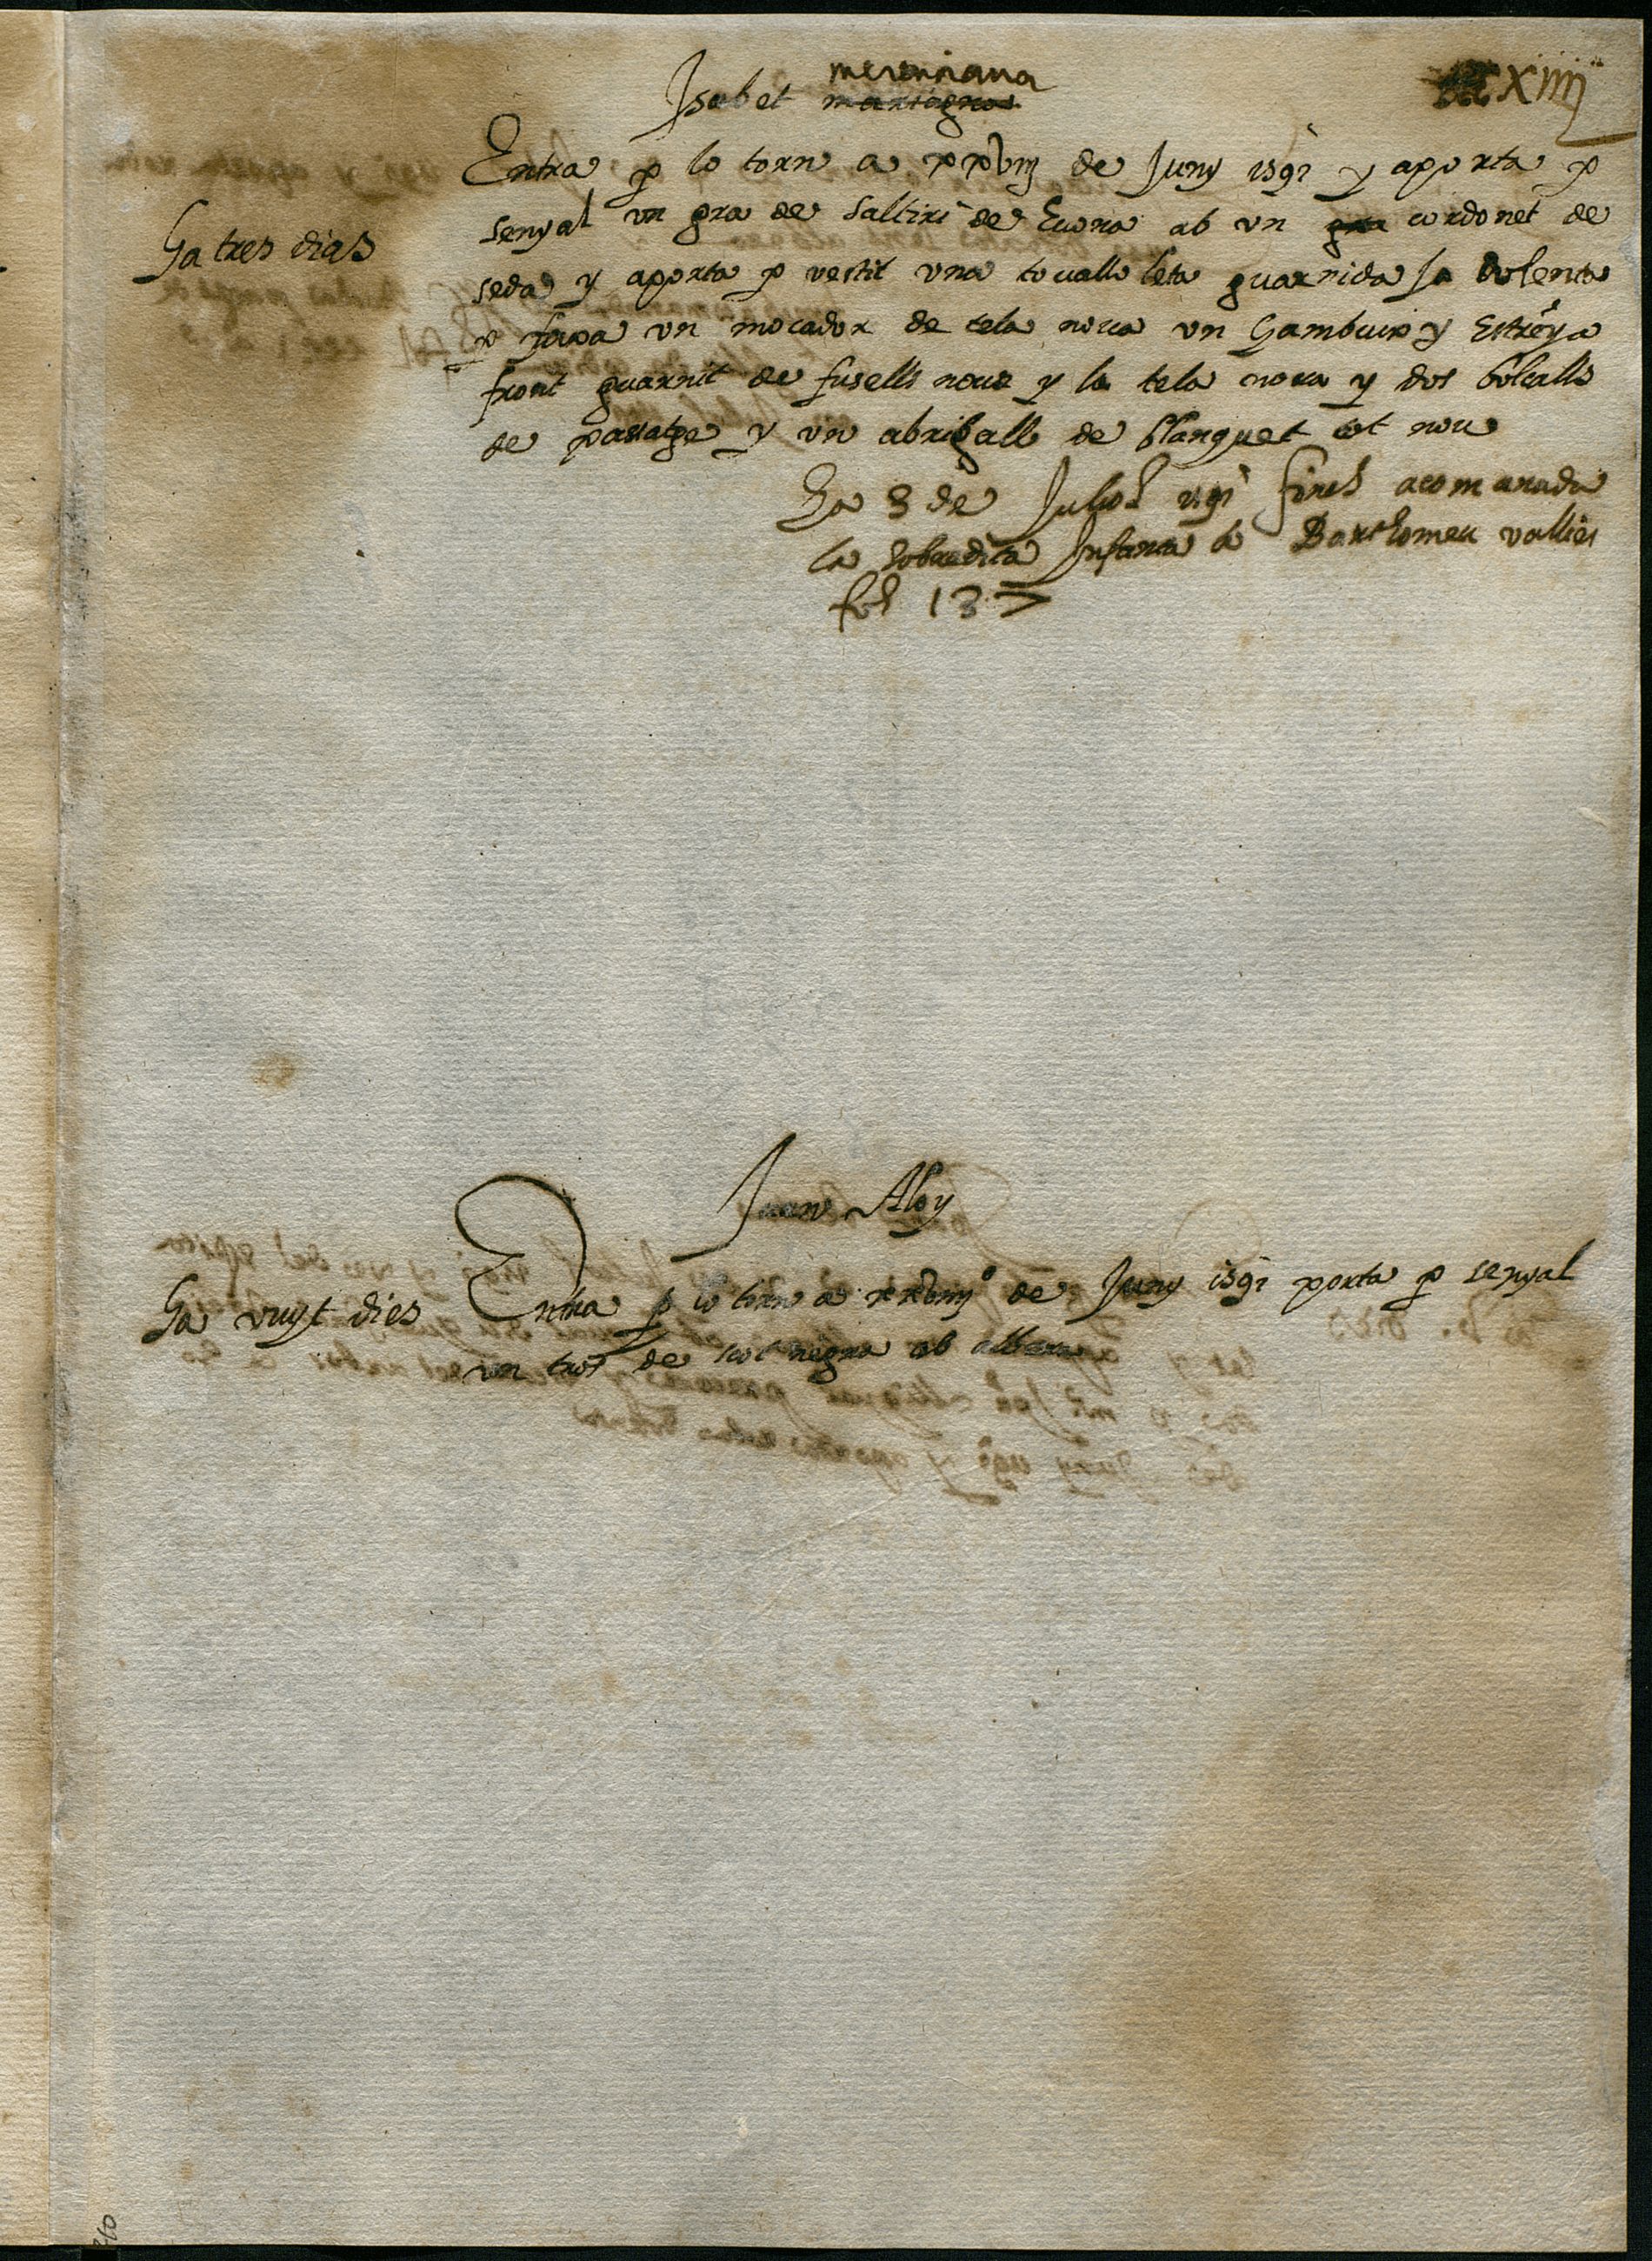 xiiij
merenciana
Isabet
Entra p lo torn a xxviij de Juny 1591 y aporta p
senyal vn gra de saltiri de Euora ab vn gra cordonet de
Ha tres dias
seda y aporta p vestit vna touallo leta guarnida ja dolenta
p faxa vn mocador de tela noua vn Gambuix y Estreÿa
front guarnit de fusells nous y la tela noua y dos bolcalls
de passatge y vn abrigall de blanquet tot nou
Ha 3 de Juliol 1591 fonch acomanada
la sobredita Infanta a Barthomeu vallies
fol 137
Juan Aloy
Ha vuyt dies
Entra p lo torn a xxviiij de Juny 1591 porta p senyal
vn tros de scot negra ab